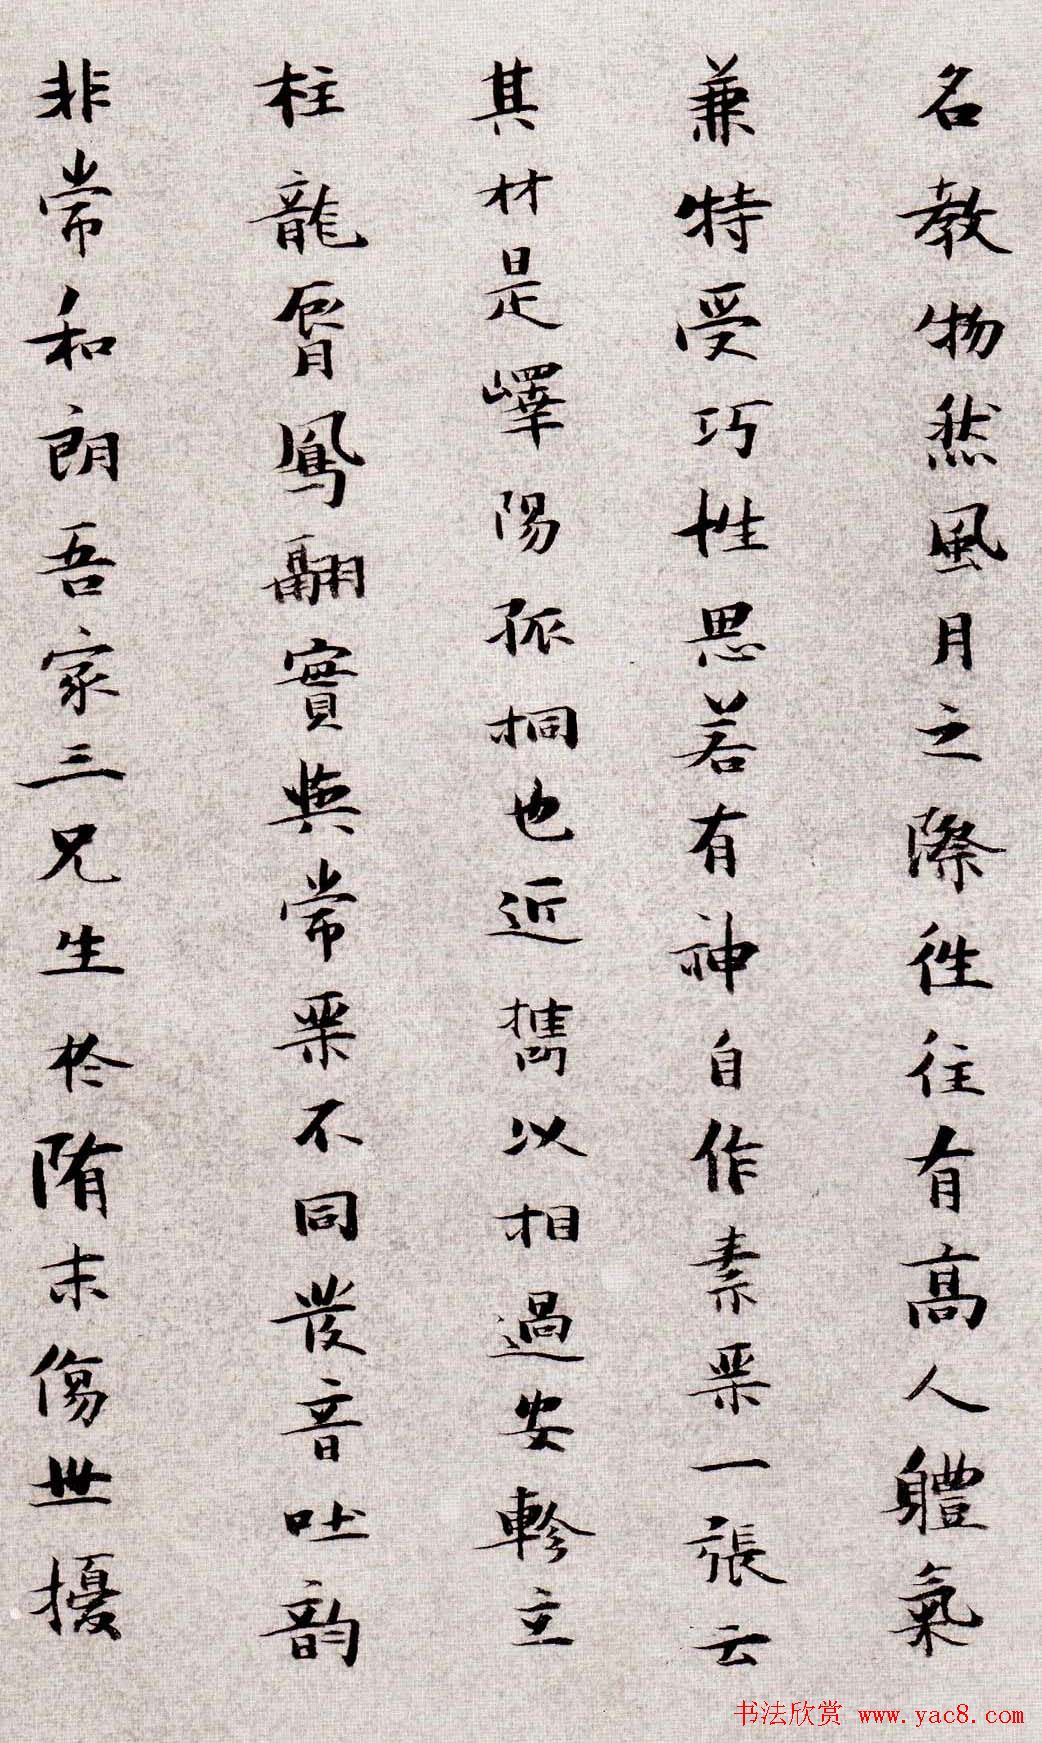 名教物然風月之際徃往有高人體氣
兼特受巧性思若有神自作素琹一張云
其材是嶧陽孤桐也近擕以相過安軫立
柱龍脣鳳翮實與常琹不同發音吐韵
非常和朗吾家三兄生於隋末傷世擾
书法欣赏 www.yac8.com